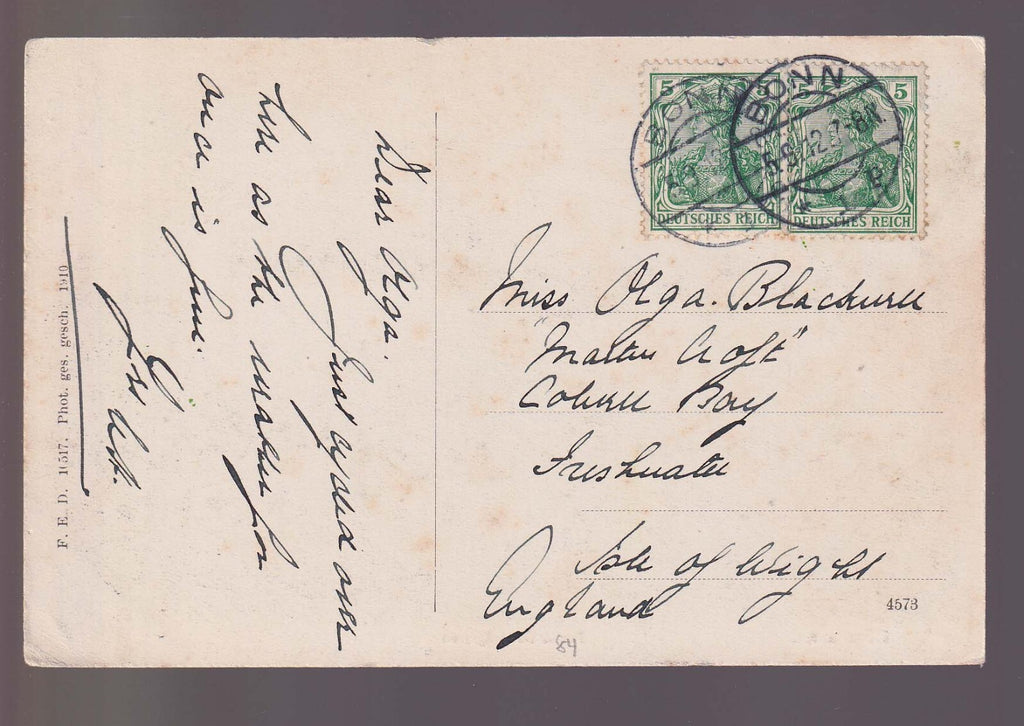 5
5
5
DEUTSCHES REICH
DEUTSCHES REICH
BONN
BONN
5.9.12.7-8N.
Dear Olga.
Just around over
here as the weather for
once is fine.
F. E. D. 1(517. Phot. ges. gesch. 1910
Miss Olga. Blackwell
Croft"
Colwell Bay
Freshwater
Isle of Wight
England
4573
84